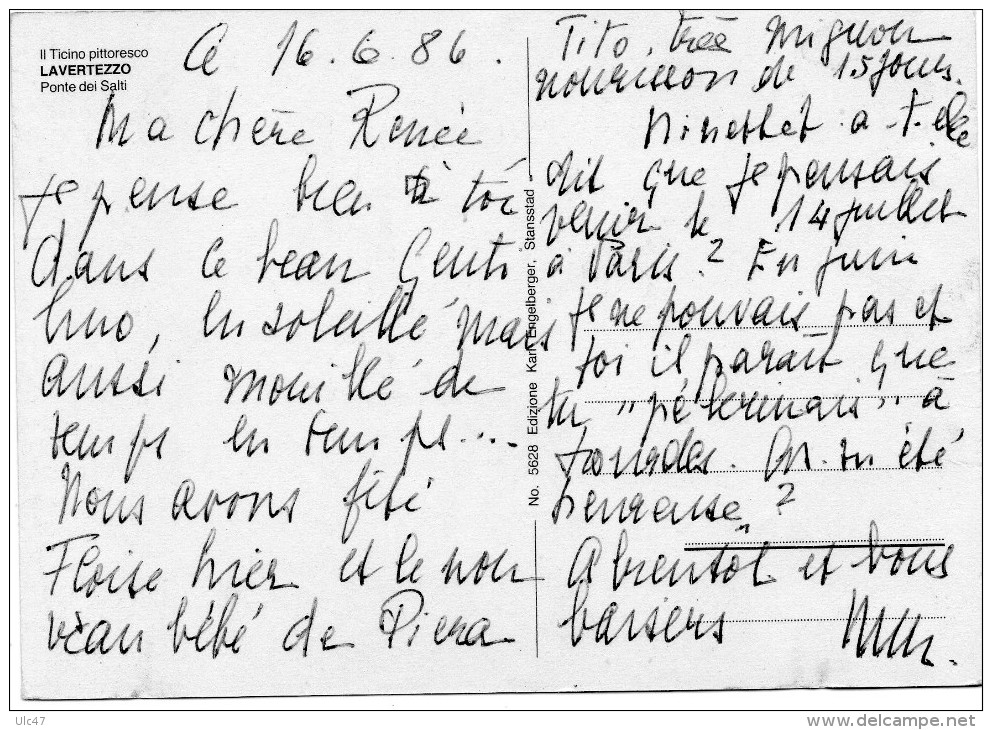 Il Ticino pittoresco
LAVERTEZZO
Ponte dei Salti
Ce 16.6.86.
Ma chère Renée
Je pense bien à toi
dans ce beau Genti
lino, ensoleillé mais
aussi mouillé de
temps en temps....
Nous avons fêté
Floise hier et le nou
veau bébé de Piera
No. 5628 Edizione Karl Engelberger, Stansstad
Tito, très mignon
nourisson de 15 jours.
a télé
dit que je pensais
venir le 14 juillet
à Paris? En juin
je ne pouvais pas et
toi il paraît que
tu "pélerinais" à
Lourdes. As-tu été
heureuse?
A bientôt et bons
baisers
Ulc47
www.delcampe.net